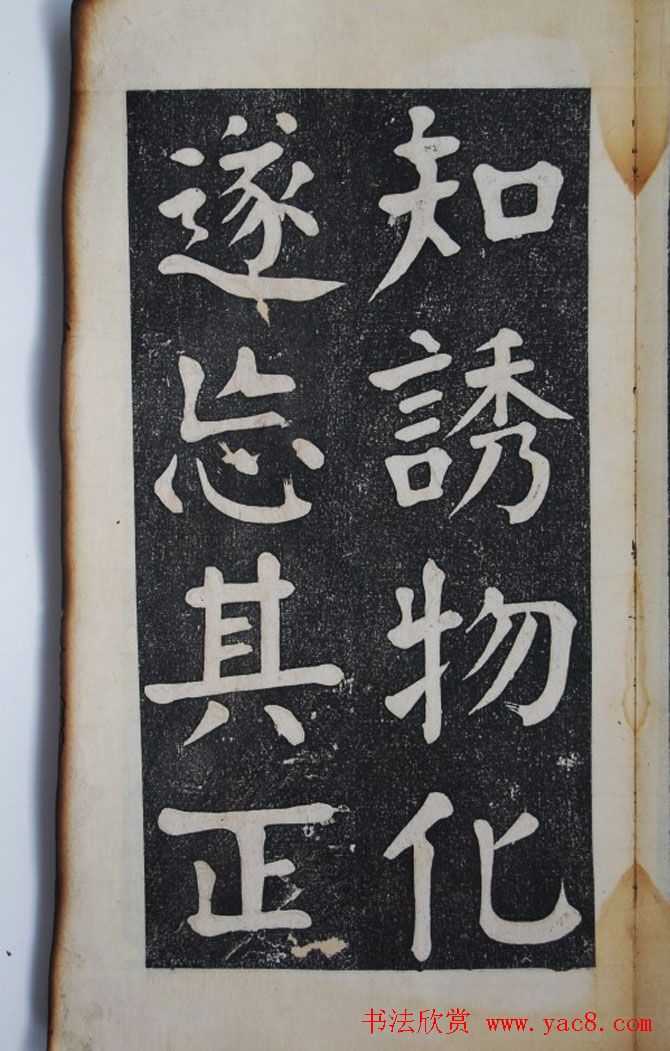 知誘物化
遂忘其正
书法欣赏 www.yac8.com